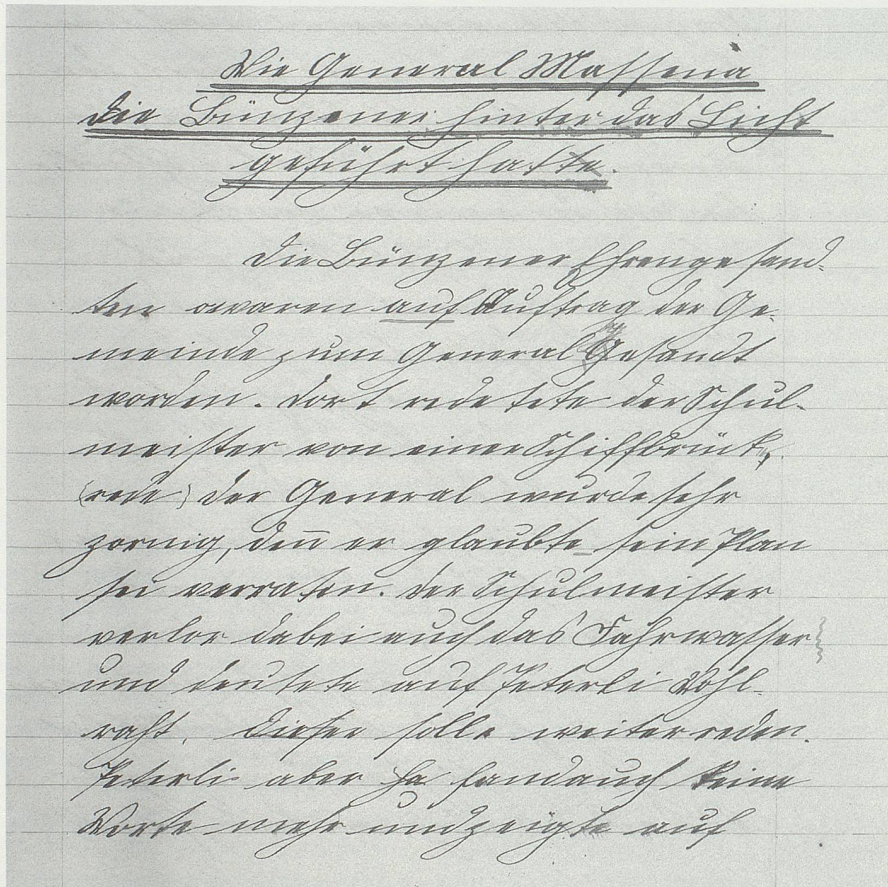 Wie General Massena
die Bünzener hinter das Licht
geführt hatte.
Die Bünzener Ehrengesand-
ten waren auf Auftrag der Ge-
meinde zum General gesandt
worden. Dort redetete der Schul-
meister von einer Schiffbrück,
(rede) der General wurde sehr
zornig, den̅ er glaubte sein Plan
sei verraten. Der Schulmeister
verlor dabei auch das Fahrwasser
und deutete auf Peterli Wohl-
raht. Dieser solle weiter reden.
Peterli aber fand auch keine
Worte mehr und zeigte auf